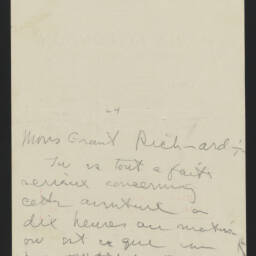 24
Mons Grant Richards
Tu es tout a faite
serieux concerning
cette aventure a
dix heures au matin
ou est ce que